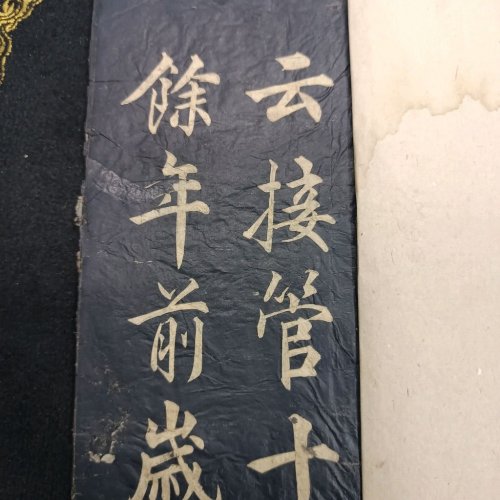 云接管十
餘年前歲